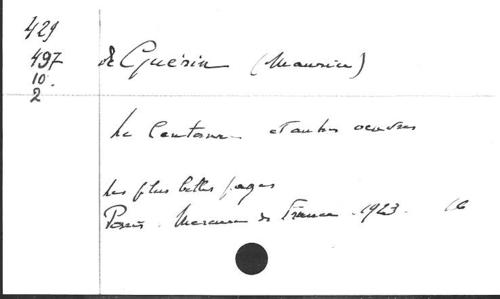 429
497 de Guérin (Maurice)
10.
2
Le Centaure et autres oeuvres
Les plus belles pages
Paris. Mercure de France. 1923. 16